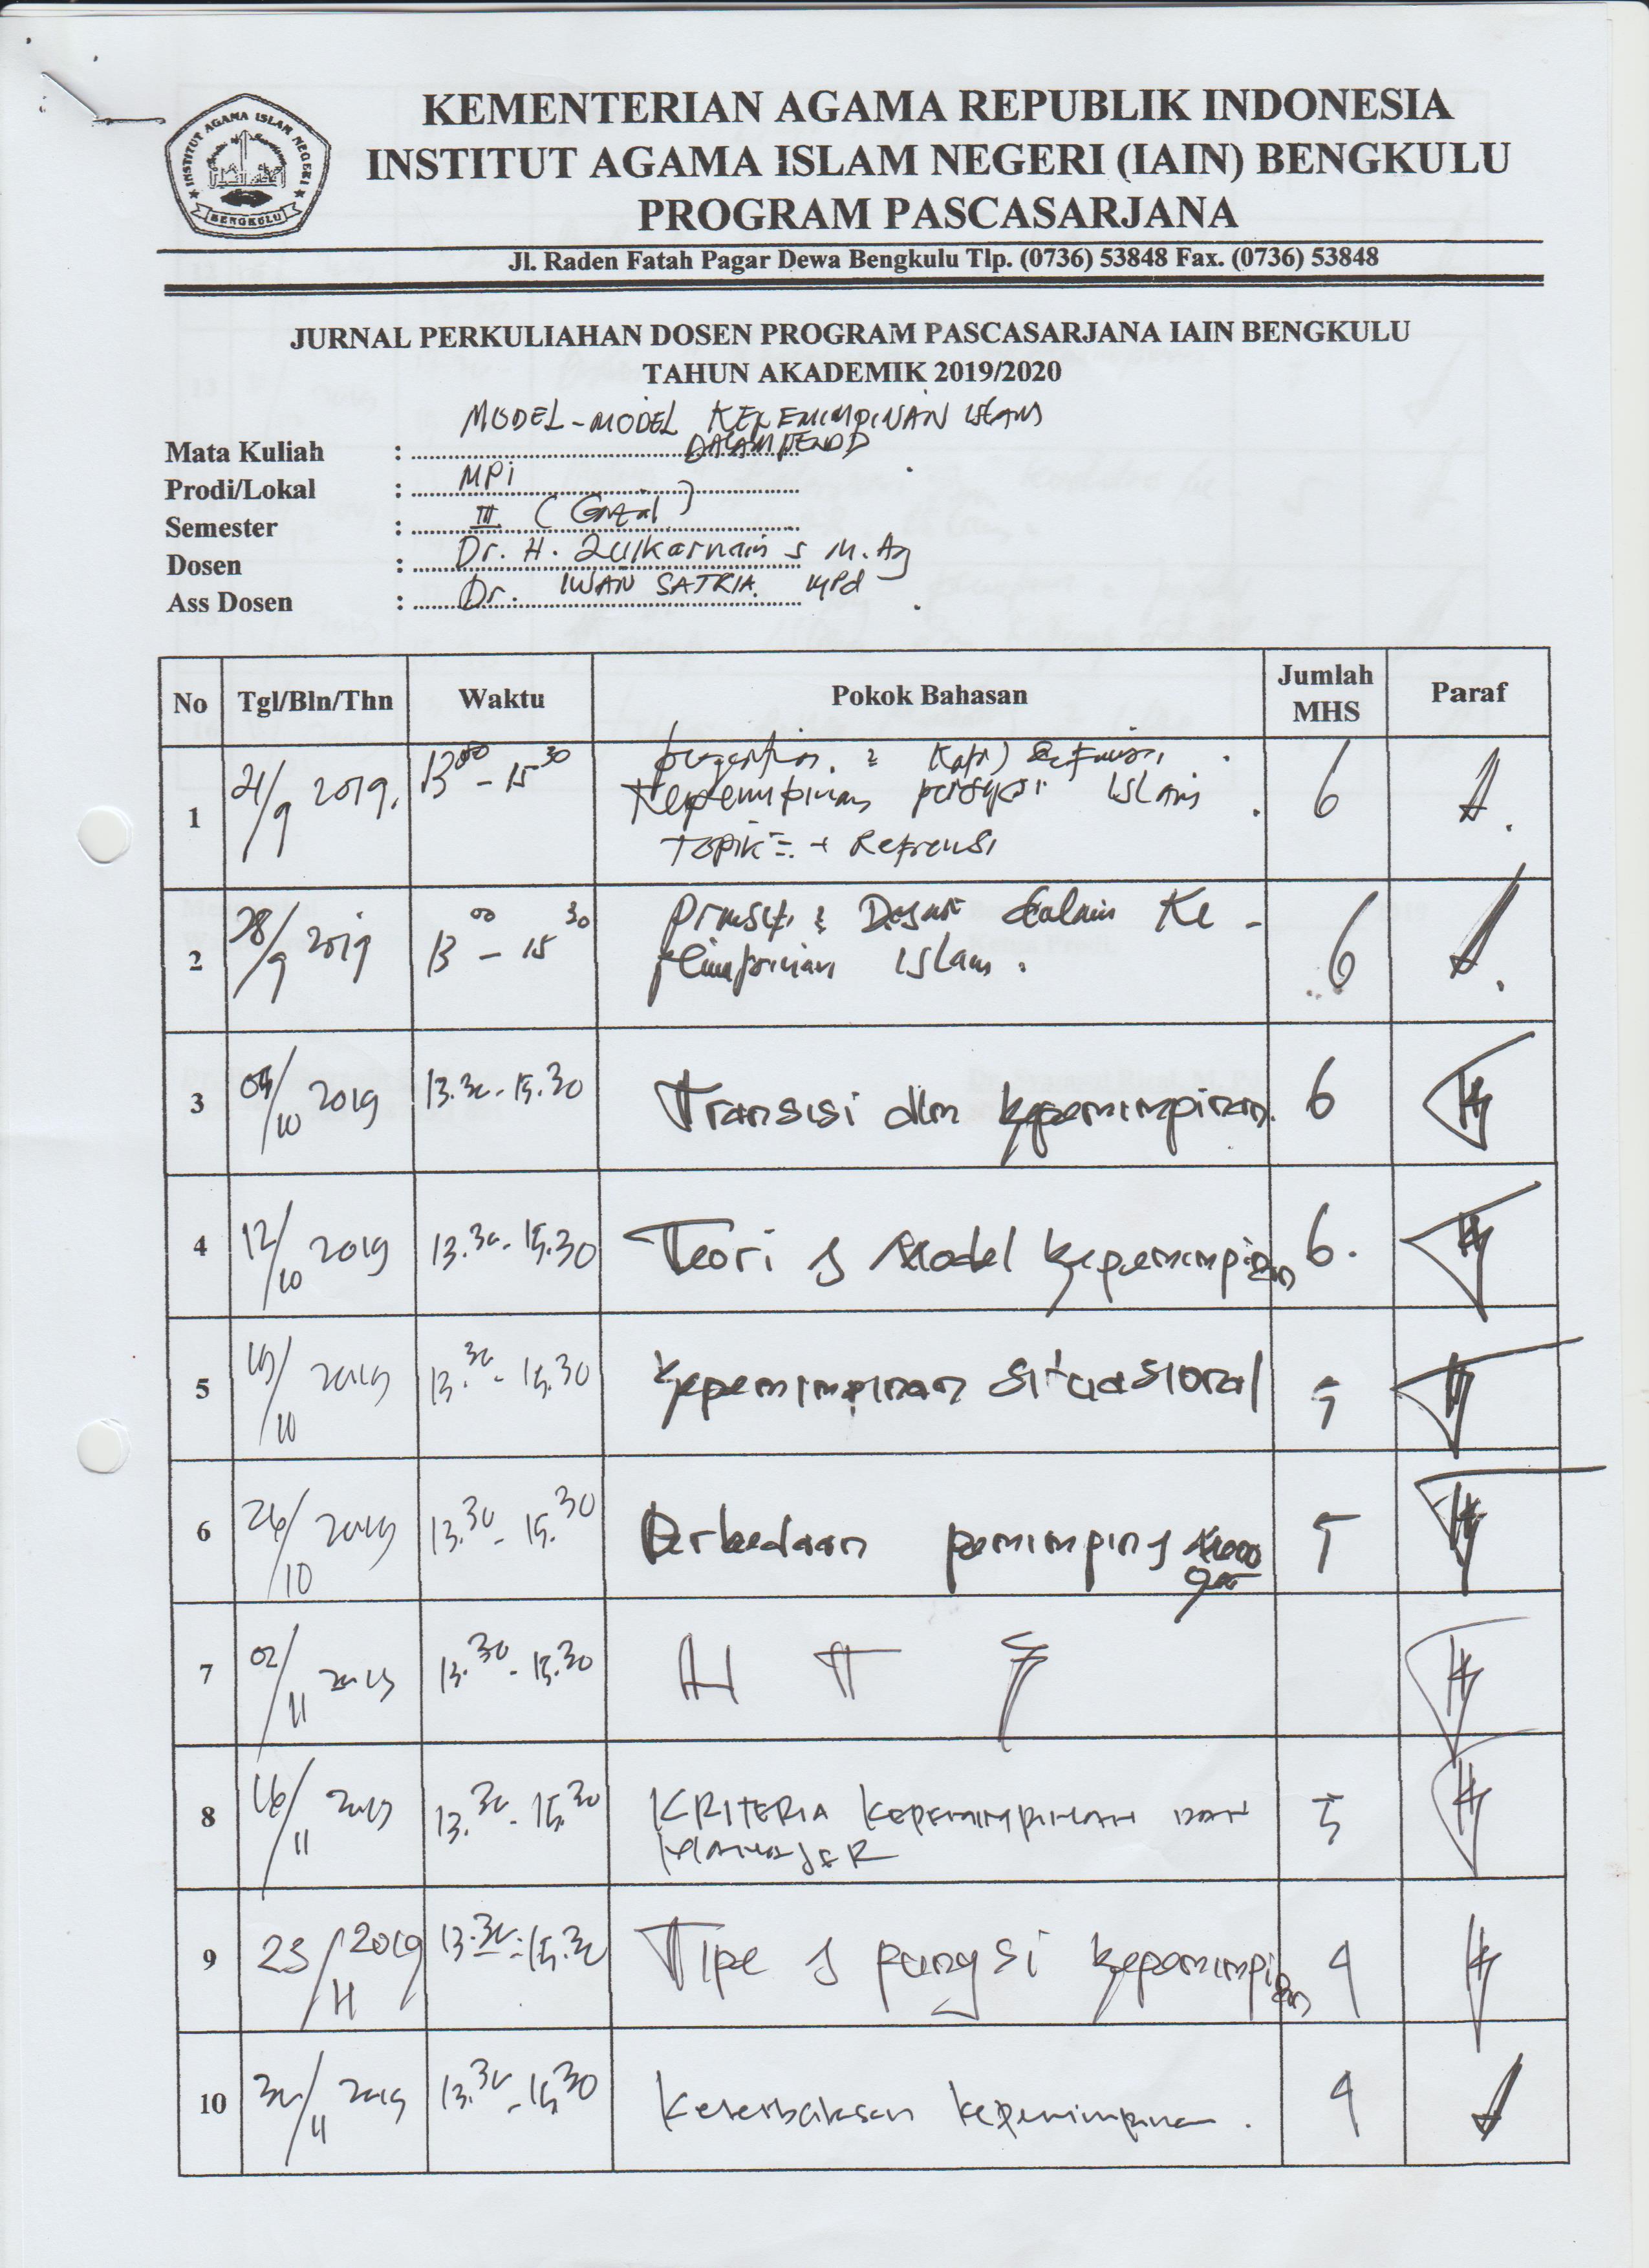 INSTITUT AGAMA ISLAM NEGERI
BENGKULU
KEMENTERIAN AGAMA REPUBLIK INDONESIA
INSTITUT AGAMA ISLAM NEGERI (IAIN) BENGKULU
PROGRAM PASCASARJANA
Jl. Raden Fatah Pagar Dewa Bengkulu Tlp. (0736) 53848 Fax. (0736) 53848
JURNAL PERKULIAHAN DOSEN PROGRAM PASCASARJANA IAIN BENGKULU
TAHUN AKADEMIK 2019/2020
MODEL-MODEL KEPEMIMPINAN ISLAM
Mata Kuliah : DALAM PENDD
Prodi/Lokal : MPI
Semester : III (Ganjil)
Dosen : Dr. H. Zulkarnain S M.Ag
Ass Dosen : Dr. IWAN SATRIA. MPd
No Tgl/Bln/Thn Waktu Pokok Bahasan Jumlah MHS Paraf
1 21/9 2019. 13 00 - 15 30 6
Kepemimpinan Islam
Topik + Refrensi
2 28/9 2019 13 00 - 15 30 dalam Ke- 6
pemimpinan Islam.
3 05/10 2019 13.30 - 15.30 Transisi dlm kepemimpinan. 6
4 12/10 2019 13.30 - 15.30 Teori & Model kepemimpinan 6.
5 19/10 2019 13.30 - 15.30 kepemimpinan situasional 5
6 26/10 2019 13.30 - 15.30 Perbedaan pemimpin & 5
7 02/11 2019 13.30 - 15.30
8 16/11 2019 13.30 - 15.30 KRITERIA KEPEMIMPINAN DAN 5
MANAJER
9 23/11 2019 13.30 - 15.30 Tipe & pungsi kepemimpinan 4
10 30/11 2019 13.30 - 15.30 kepemimpinan. 4